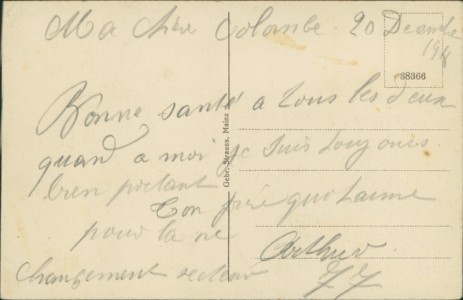 Ma chère Colombe. 20 Decembre
191
38366
Bonne santé a tous les deux
quand a moi je suis toujours
bien portant
Ton frère qui t'aime
pour la vie
Arthur.
changement secteur
77
Gebr. Strauss, Mainz